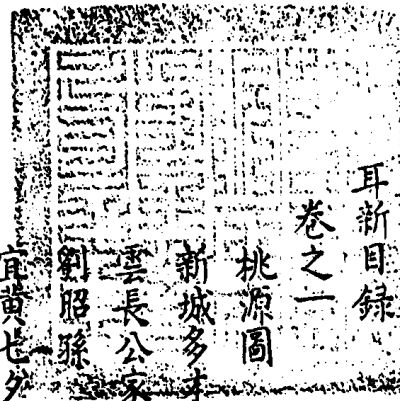 耳新目録
卷之一
桃源圖
新城多才
雲長公家
劉昭孫
宜黄七夕